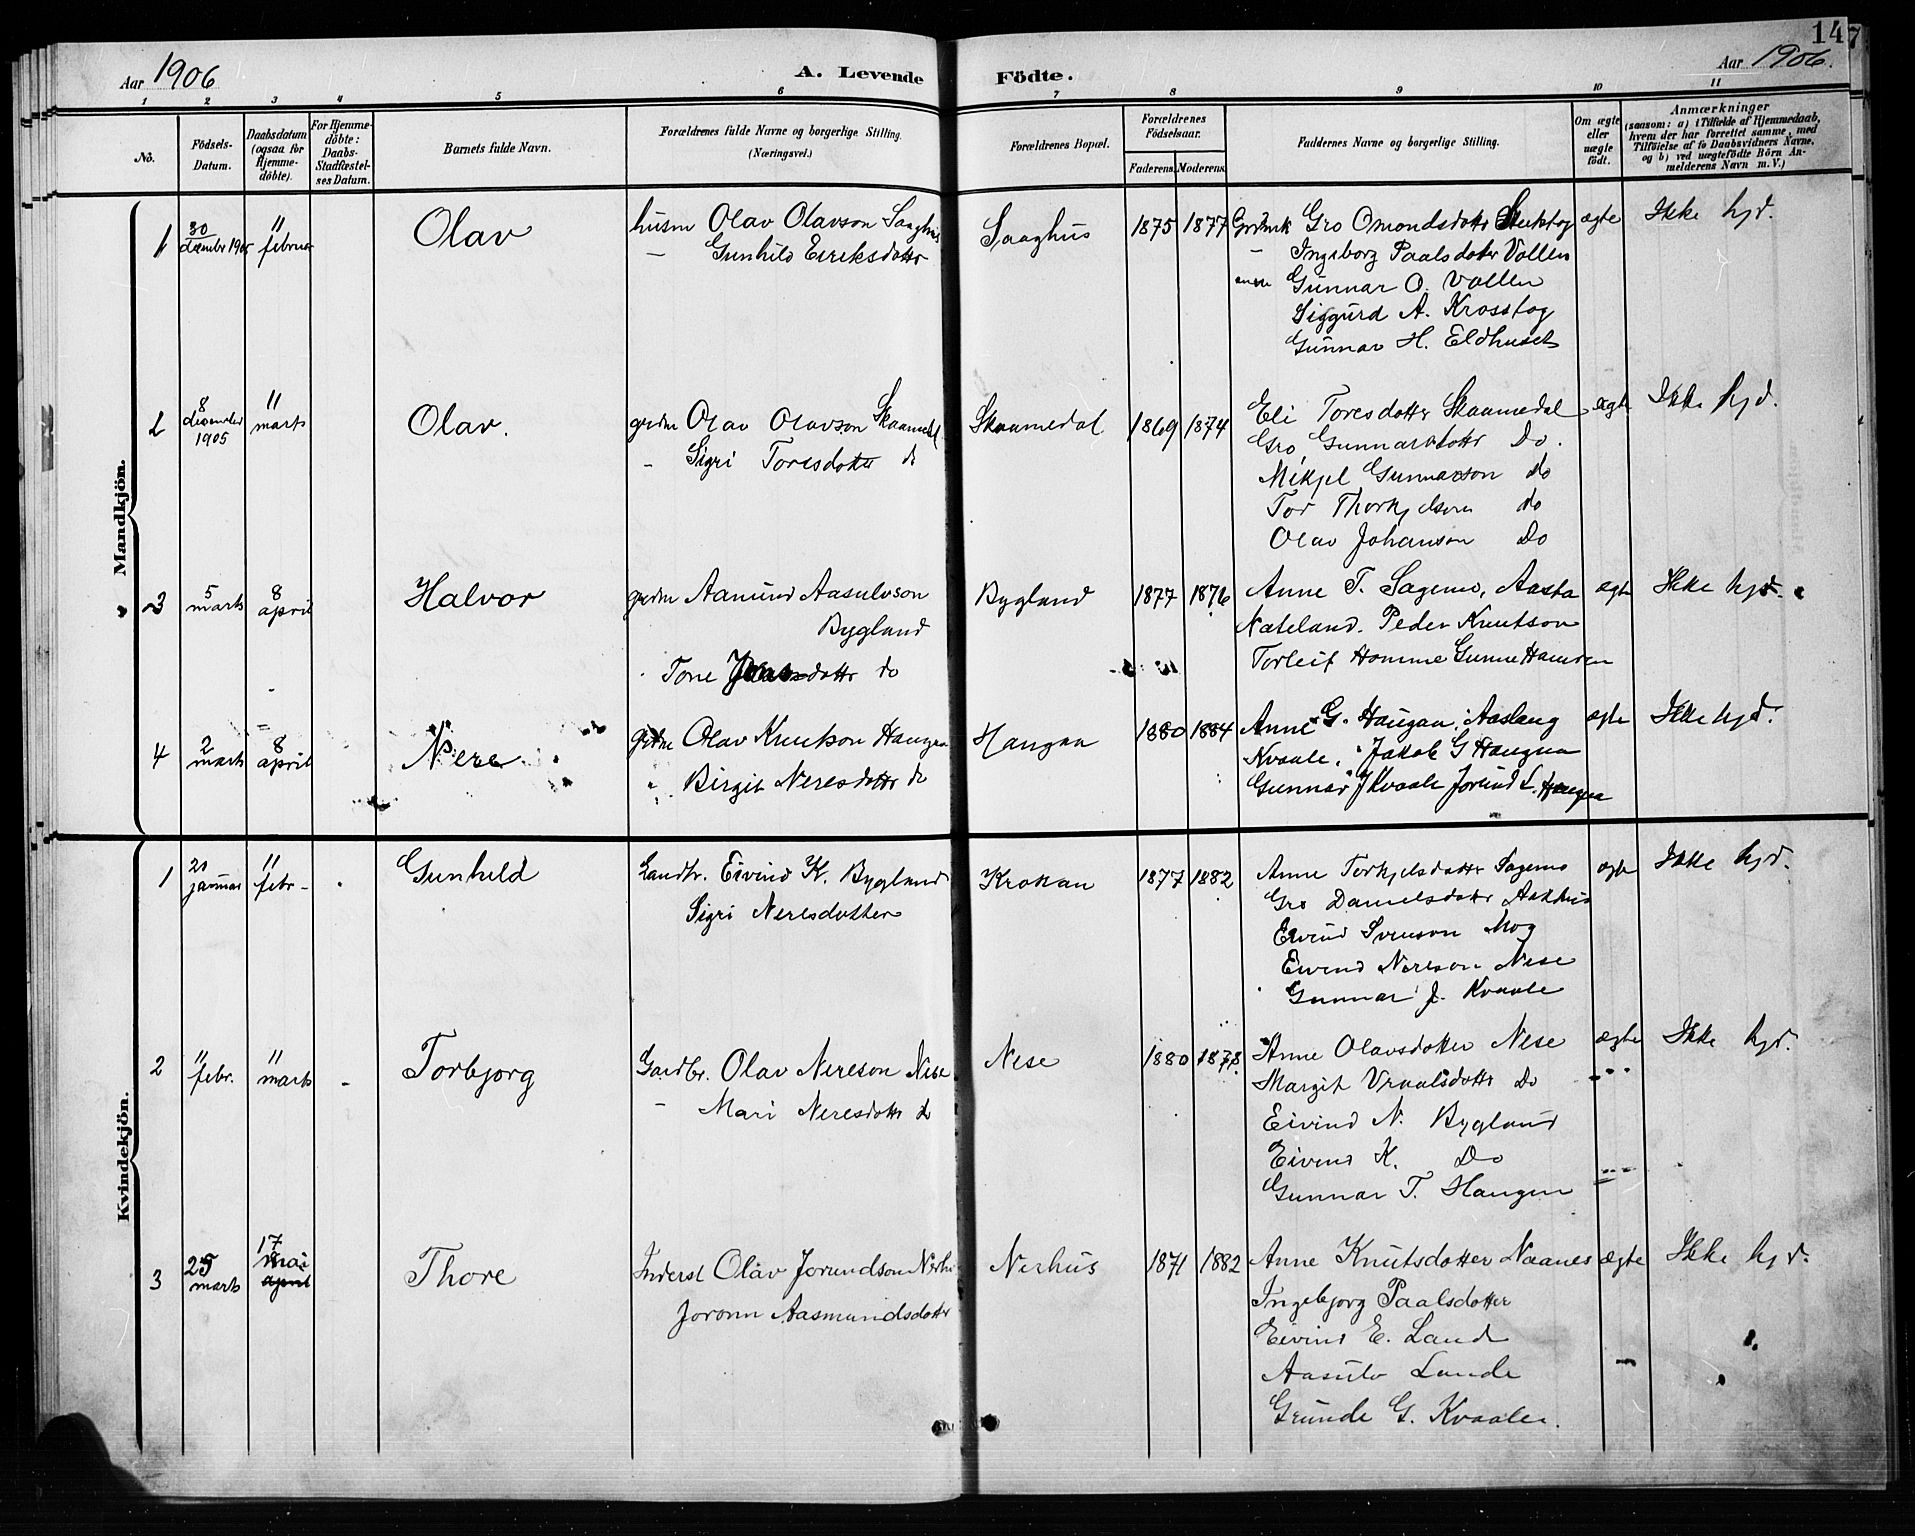 147
Aar 1906
A. Levende Födte.
Aar 1906.
1 2 3 4 5 6 7 8 9 10 11
No.
Födsels-
Datum.
Daabsdatum
(ogsaa for
Hjemme-
döbte).
For Hjemme-
döbte:
Daabs-
Stadfæstel-
ses Datum.
Barnets fulde Navn.
Forældrenes fulde Navne og borgerlige Stilling.
(Næringsvei.)
Forældrenes Bopæl.
Forældrenes
Födselsaar.
Faderens. Moderens.
Faddernes Navne og borgerlige Stilling.
Om ægte
eller
uægte
födt.
Anmærkninger
(saasom: a) i Tilfælde af Hjemmedaab,
hvem der har forrettet samme, med
Tilföielse af to Daabsvidners Navne,
og b) ved uægtefödte Börn An-
melderens Navn m. V.)
Mandkjön.
1
30
december 1905
11
februar
Olav
husm Olav Olavson Saaghus
— Gunhild Eiriksdotter
Saaghus
1875 1877
Gro Omondsdotter
— Ingeborg Paalsdotter Vollen
Gunnar O. Vollen
Siggurd A. Krosstog
Gunnar H. Eldhuset
ægte
Ikke hjd.
2
8
desember
1905
11
marts
Olav.
grdm Olav Olavson Skaamedal
— Sigri Toresdotter do
Skaamedal
1869 1874
Eli Toresdotter Skaamedal
Gro Gunnarsdotter Do.
Mikjel Gunnarson do
Tor Thorkjelson do
Olav Johanson Do
ægte
Ikke hjd.
3
5
marts
8
april
Halvor
grdm Aamund Aasulvson
Bygland
Tone dotter do
Bygland
1877 1876
Anne T. Sagemo, Aasta
Nateland. Peder Knutson
Torleif Homme Gunne Hamren
ægte
Ikke hjd.
4
2
marts
8
april
Nere
grdm Olav Knutson Haugen
" Birgit Neresdotter do
Haugaa
1880 1884
Anne G. Haugaa, Aaslaug
Kvaale, Jakob G Haugaa
Gunnar J Kvaale Jorund L. Haugaa
ægte
Ikke hjd.
Kvindekjön.
1
20
januar
11
febr -
Gunhild
Gardbr. Eivind K. Bygland
Sigri Neresdotter
Krokan
1877 1882
Anne Torkjelsdotter Sagemo
Gro Danielsdotter Aakhus
Eivind Svenson Mog
Eivind Nereson Nese
Gunnar J. Kvaale
ægte
Ikke hjd.
2
11
febr.
11
marts
-
Torbjorg
Gardbr. Olav Nereson Nese
— Mari Neresdotter do
Nese
1880 1878
Anne Olavsdotter Nese
Margit Vraalsdotter Do
Eivind N. Bygland
Eivind K. Do
Gunnar T. Haugen
ægte
Ikke hjd.
3
25
marts
17
mai
april
Thore
Inderst Olav Jorundson Nerhus
Joronn Aasmundsdotter
Nerhus
1871 1882
Anne Knutsdotter Naanes
Ingebjorg Paalsdotter
Eivind E. Land
Aasulv Lunde
Grunde G. Kvaale.
ægte
Ikke hjd.